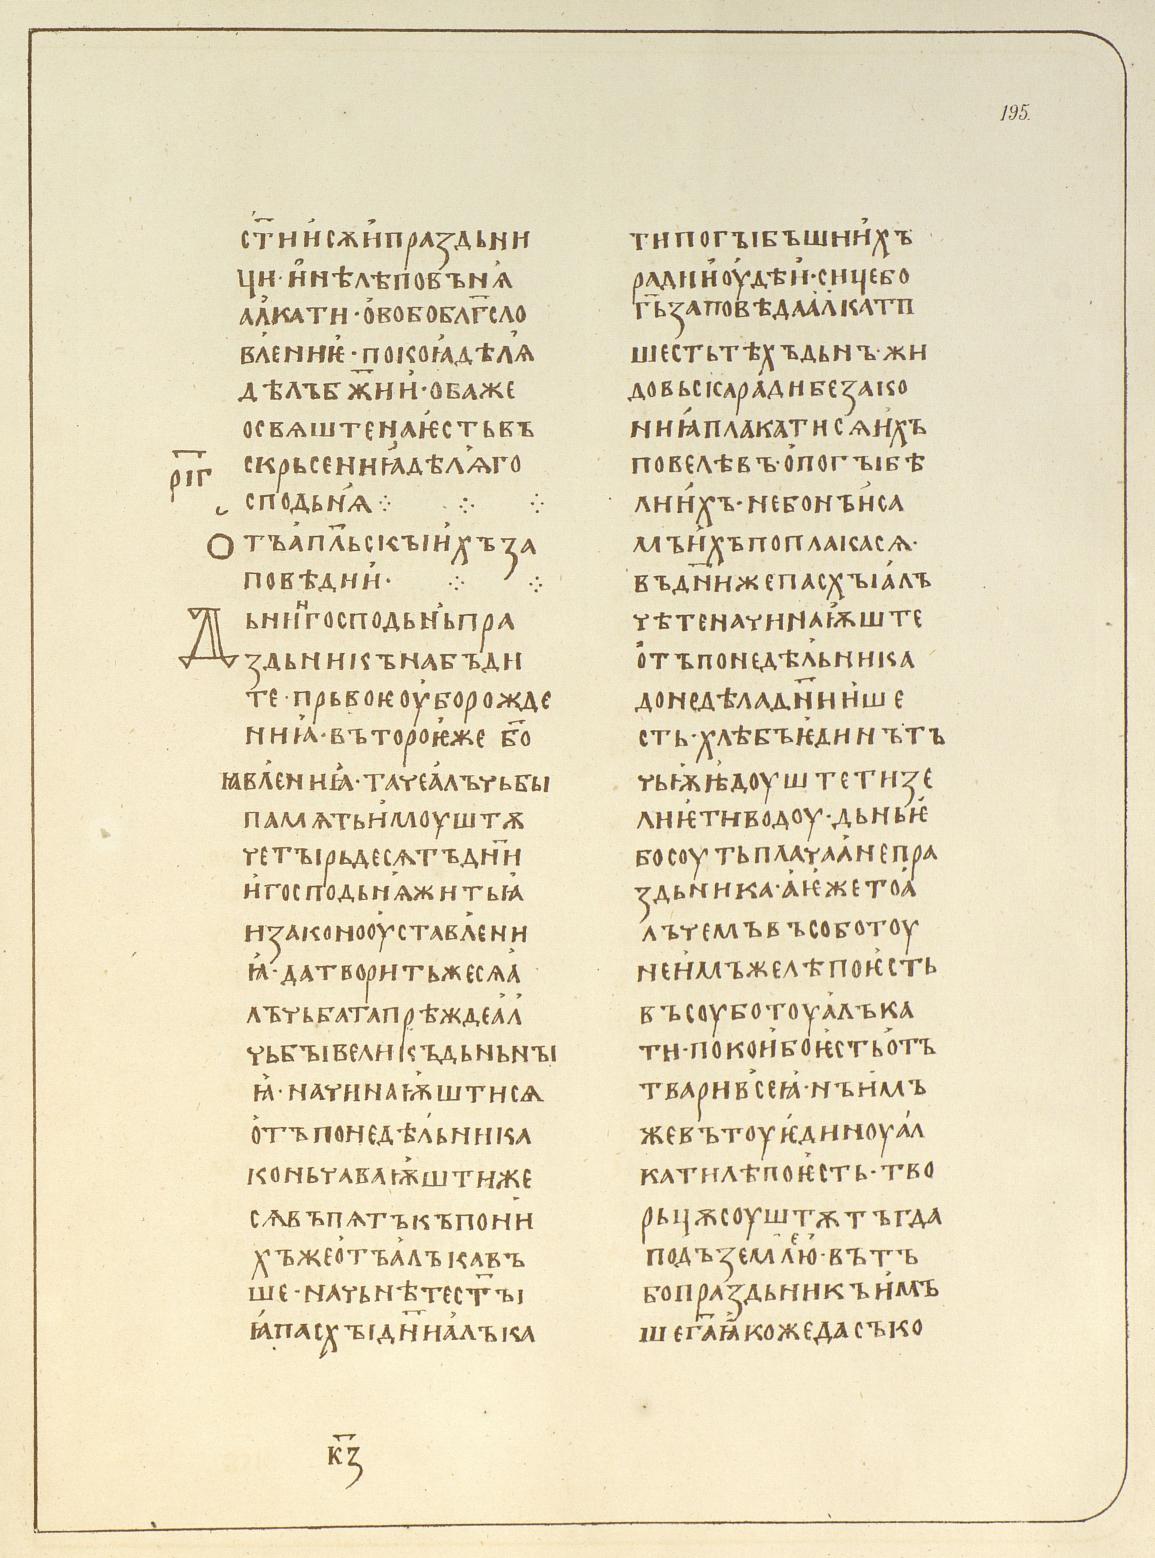 195.
ст҃ии сѫи праздьни
ци· и не лѣпо въ нꙗ
алкати· ово бо бла҃гсло
влениѥ· покоꙗ дѣлꙗ
дѣлъ бж҃ии· оба же
освѧштена ѥсть въ
скрьсениꙗ дѣлꙗ го
сподьнꙗ ⁘ ⁘ ⁘
рі҃г
Отъ ап҃льскъіихъ за
повѣдии· ⁘ ⁘
Дьнии господьнь пра
здьникъ наблъди
те· прьвоѥ оубо рожде
ниꙗ· вътороѥ же бо҃
ꙗвлениꙗ· таче алъчьбы
памѧть имоуштѫ
четъірьдесѧтъ дн҃и
и господьнꙗ житьꙗ
и законооуставлени
ꙗ· да творить же сѧ а
лъчьба та прѣжде ал
чьбъі великъдьньнъі
ꙗ· начинаѭшти сѧ
отъ понедѣльника
коньчаваѭшти же
сѧ въ пѧтъкъ по ни
хъ же отъалъкавъ
ше· начьнѣте ст҃ъі
ꙗ пасхъі дн҃и алъка
ти погъібъшиихъ
ради иоудѣи· сице бо
гь҃ заповѣда алкати
шесть тѣхъ дьнъ· жи
довьска ради безако
ниꙗ плакати сѧ ихъ
повелѣвъ· о погъібѣ
лниихъ· небо нъи са
мъ ихъ поплака сѧ·
въ дн҃и же пасхъі алъ
чѣте начинаѭште
отъ понедѣльника
до недѣла дн҃ии ше
сть· хлѣбъ ѥдинъ тъ
чьѭ ѣдоуште ти зе
лиѥ ти водоу· дьньѥ
бо соуть плача а не пра
здьника· а ѥже то а
лъчемъ въ соботоу
не имъже лѣпо ѥсть
въ соуботоу алъка
ти· покои бо ѥсть отъ
твари всеꙗ· нъ имъ
же въ тоу ѥдиноу ал
кати лѣпо ѥсть· тво
рьцѫ соуштѫ тъгда
подъ землею· въ тъ
бо праздьникъ имъ
шега҃ ꙗкоже да съко
к҃з